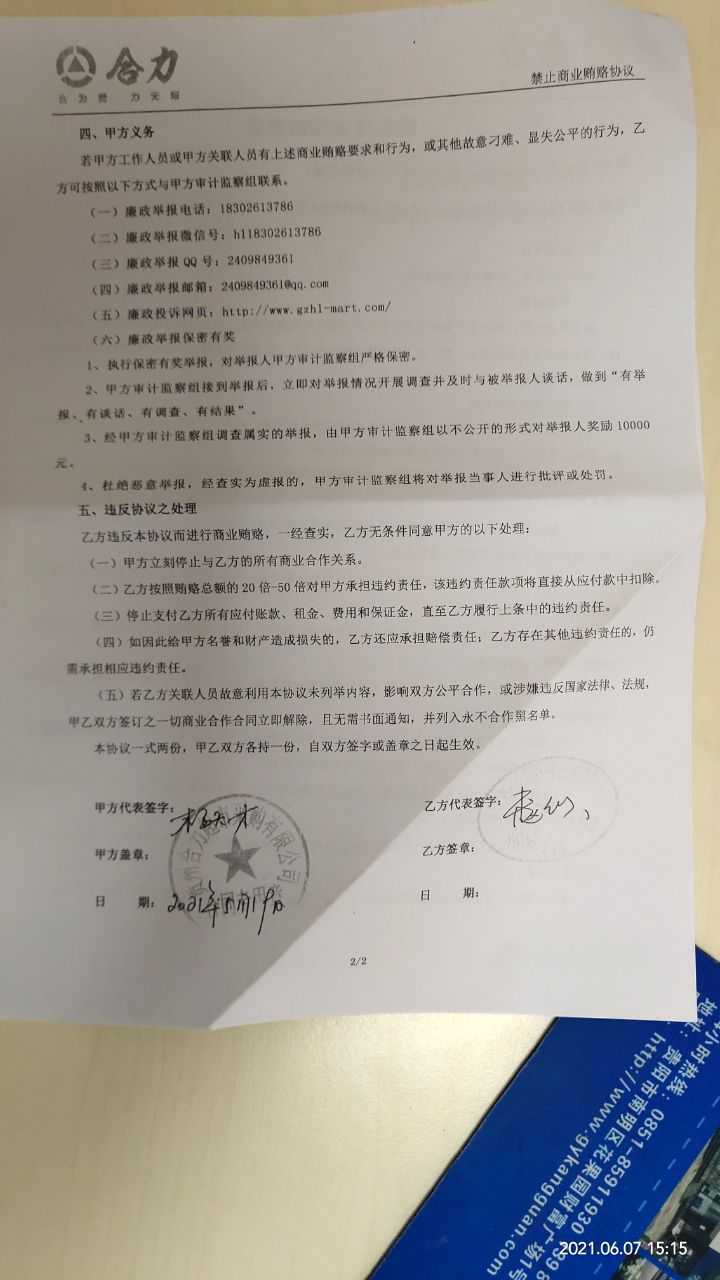 合力
合为贵 力无穷
禁止商业贿赂协议
四、甲方义务
若甲方工作人员或甲方关联人员有上述商业贿赂要求和行为，或其他故意刁难、显失公平的行为，乙
方可按照以下方式与甲方审计监察组联系。
（一）廉政举报电话：18302613786
（二）廉政举报微信号：hl18302613786
（三）廉政举报 QQ 号：2409849361
（四）廉政举报邮箱：2409849361@qq.com
（五）廉政投诉网页：http://www.gzhl-mart.com/
（六）廉政举报保密有奖
1、执行保密有奖举报，对举报人甲方审计监察组严格保密。
2、甲方审计监察组接到举报后，立即对举报情况开展调查并及时与被举报人谈话，做到“有举
报、有谈话、有调查、有结果”。
3、经甲方审计监察组调查属实的举报，由甲方审计监察组以不公开的形式对举报人奖励 10000
元。
4、杜绝恶意举报，经查实为虚报的，甲方审计监察组将对举报当事人进行批评或处罚。
五、违反协议之处理
乙方违反本协议而进行商业贿赂，一经查实，乙方无条件同意甲方的以下处理：
（一）甲方立刻停止与乙方的所有商业合作关系。
（二）乙方按照贿赂总额的 20 倍-50 倍对甲方承担违约责任，该违约责任款项将直接从应付款中扣除。
（三）停止支付乙方所有应付账款、租金、费用和保证金，直至乙方履行上条中的违约责任。
（四）如因此给甲方名誉和财产造成损失的，乙方还应承担赔偿责任；乙方存在其他违约责任的，仍
需承担相应违约责任。
（五）若乙方关联人员故意利用本协议未列举内容，影响双方公平合作，或涉嫌违反国家法律、法规，
甲乙双方签订之一切商业合作合同立即解除，且无需书面通知，并列入永不合作黑名单。
本协议一式两份，甲乙双方各持一份，自双方签字或盖章之日起生效。
甲方代表签字：
乙方代表签字：
甲方盖章：
乙方签章：
日 期：2021年5月19日
日 期：
2/2
小时热线：0851-85911930
地址：贵阳市南明区花果园财富广场1号
http://www.gykangguan.com
2021.06.07 15:15